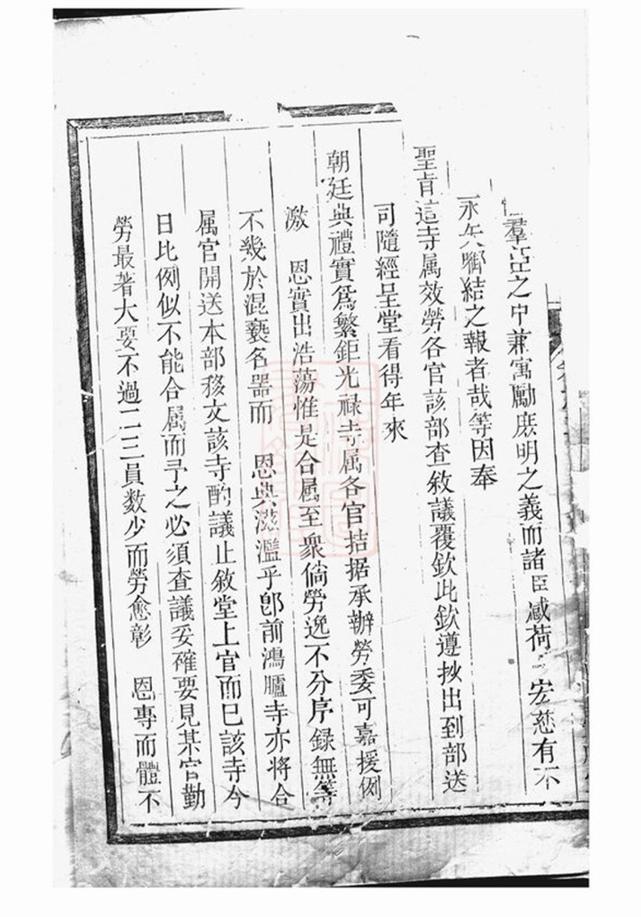 羣臣之中兼寓勵庶明之義而諸臣咸荷 宏慈有不
永矢啣結之報者哉等因奉
聖旨這寺属效勞各官該部查敘議覆欽此欽遵抄出到部送
司隨經呈堂看得年來
朝廷典禮實爲繁鉅光禄寺属各官拮据承辦勞委可嘉援例
激 恩實出浩蕩惟是合属至衆倘勞逸不分序録無等
不幾於混褻名器而 恩典滋濫乎卽前鴻臚寺亦將合
属官開送本部移文該寺酌議止敘堂上官而已該寺今
日比例似不能合属而予之必須查議妥確要見某官勤
勞最著大要不過二三員数少而勞愈彰 恩專而體不